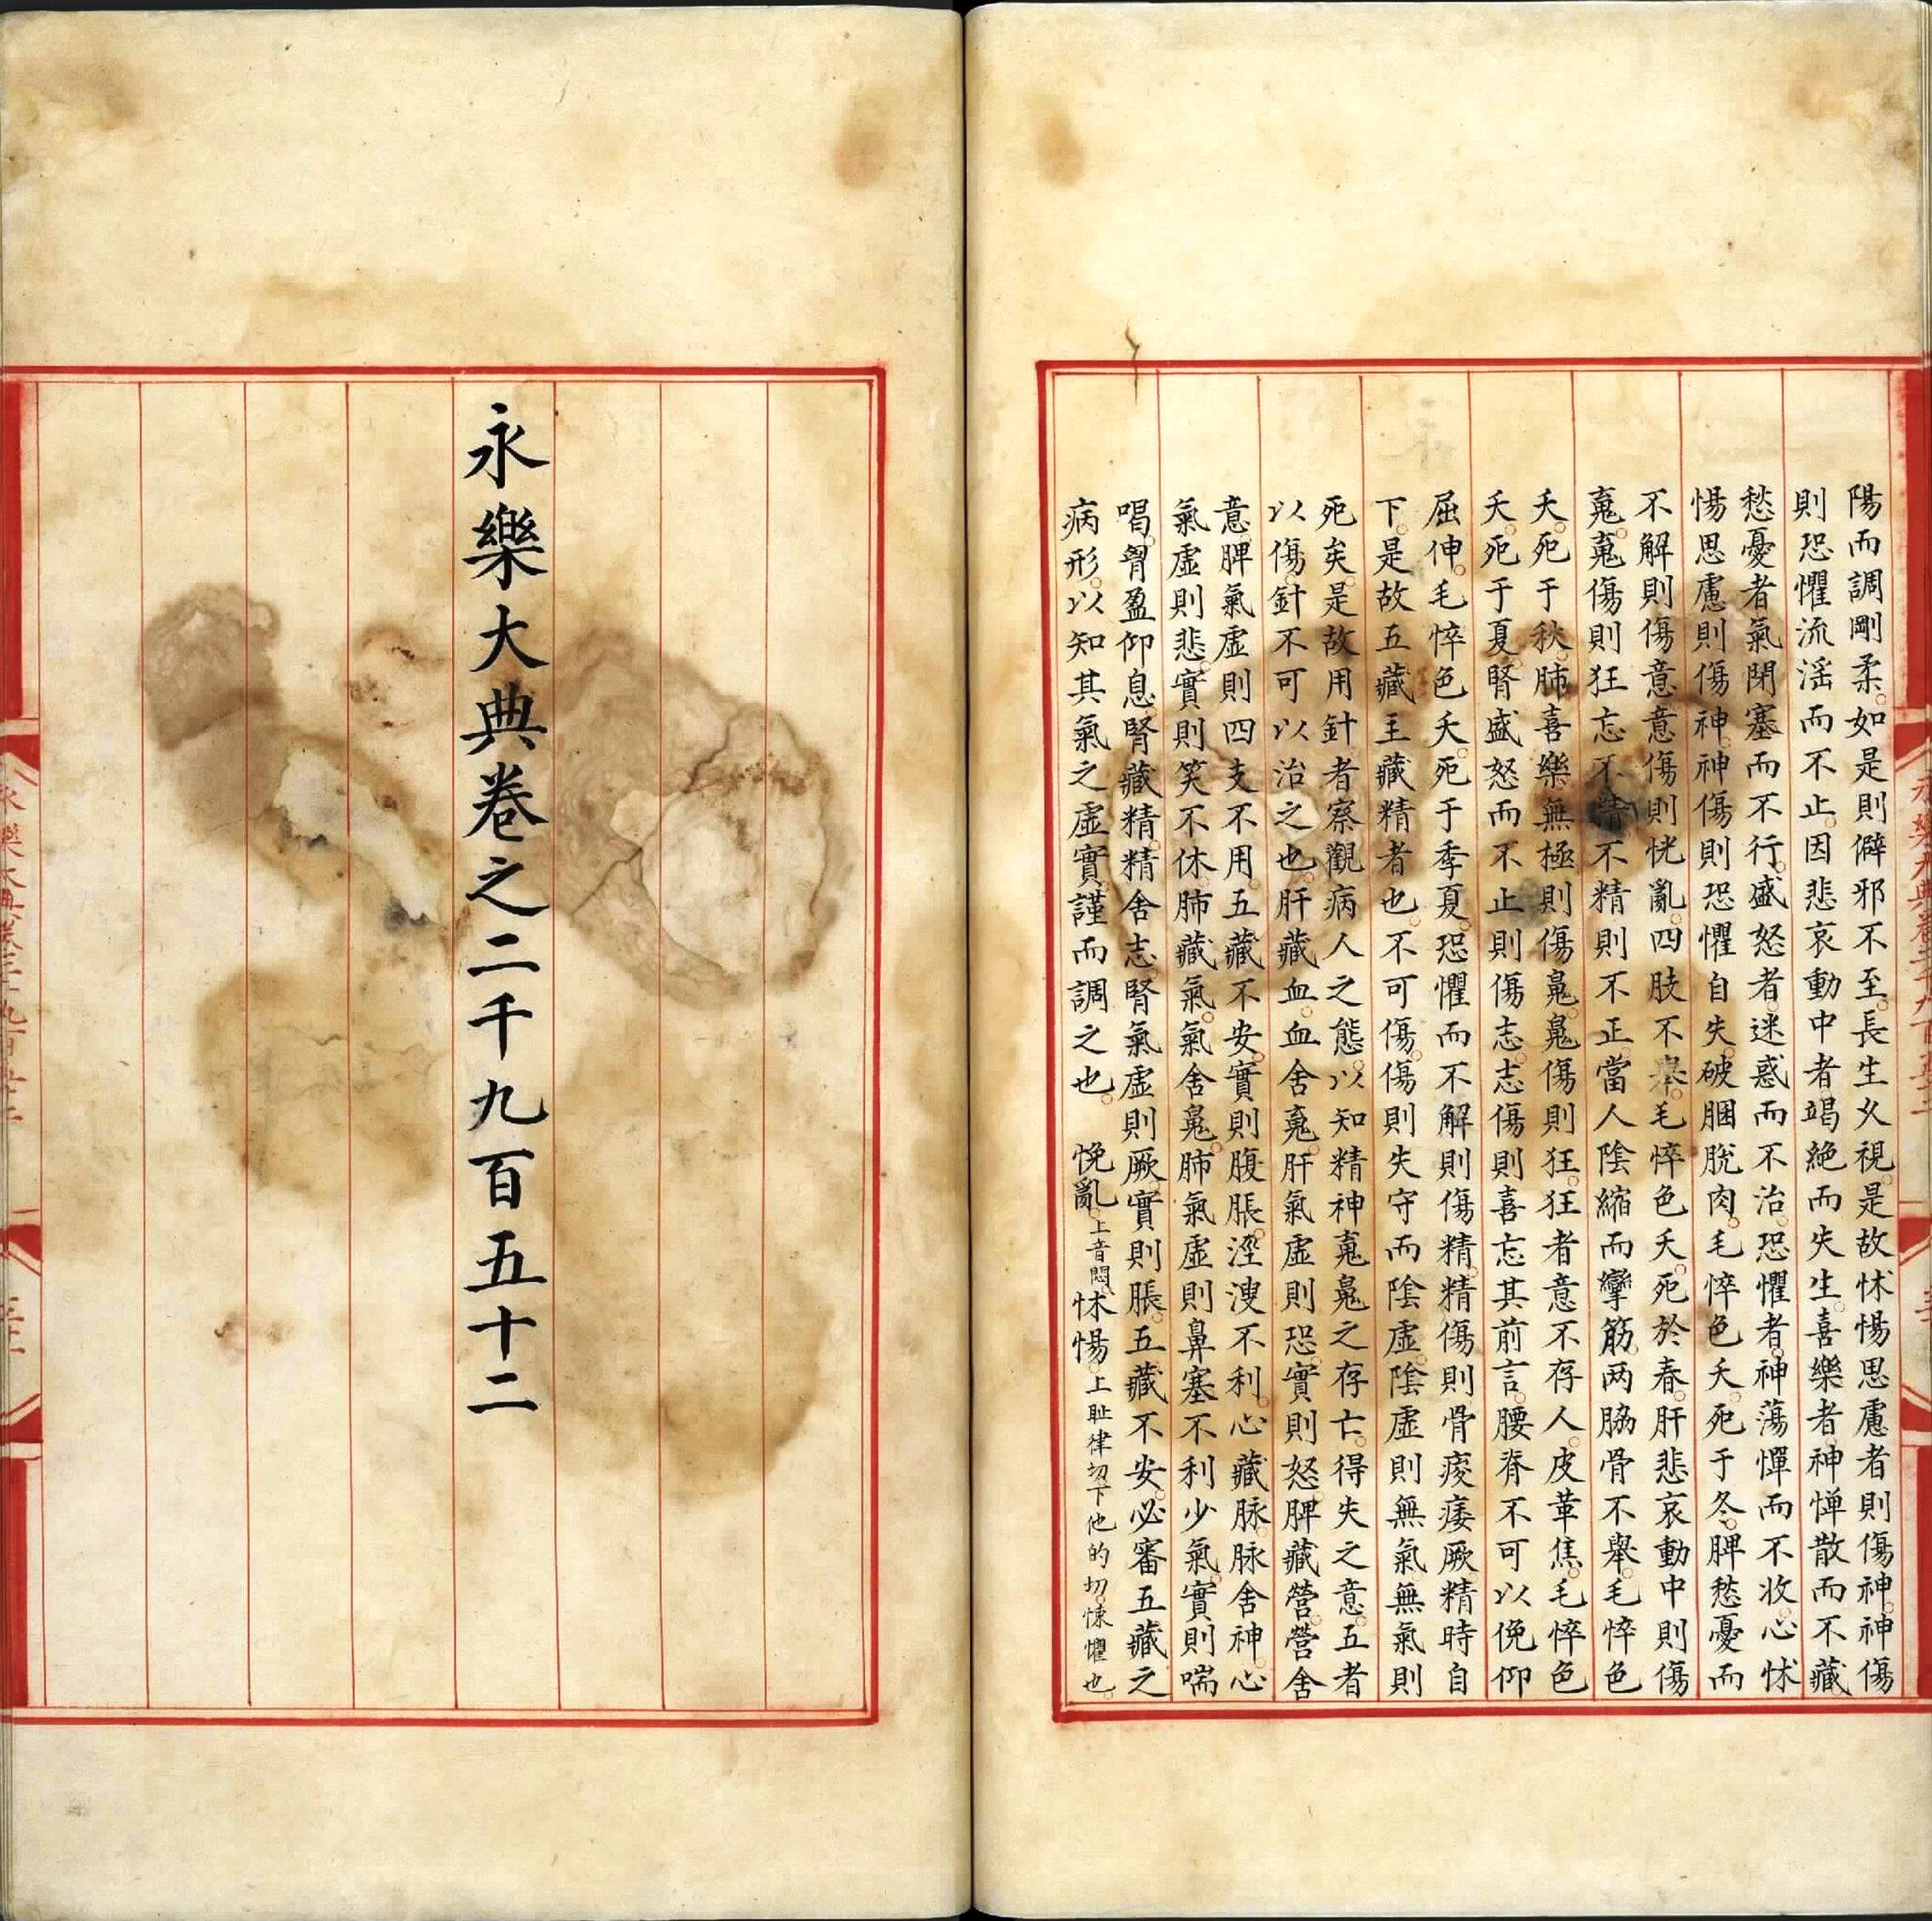 陽而調剛柔如是則僻邪不至長生久視是故怵惕思慮者則傷神神傷
則恐懼流淫而不止因悲哀動中者竭絶而失生喜樂者神憚散而不藏
愁憂者氣閉塞而不行盛怒者迷惑而不治恐懼者神蕩憚而不收心怵
惕思慮則傷神神傷則恐懼自失破䐃脫肉毛悴色夭死于冬脾愁憂而
不解則傷意意傷則恍亂四肢不舉毛悴色夭死於春肝悲哀動中則傷
䰟䰟傷則狂忘不精不精則不正當人陰縮而攣筋两脇骨不舉毛悴色
夭死于秋肺喜樂無極則傷鬼鬼傷則狂狂者意不存人皮革焦毛悴色
夭死于夏腎盛怒而不止則傷志志傷則喜忘其前言腰脊不可以俛仰
屈伸毛悴色夭死于季夏恐懼而不解則傷精精傷則骨痠痿厥精時自
下是故五藏主藏精者也不可傷傷則失守而陰虛陰虛則無氣無氣則
死矣是故用針者察觀病人之態以知精神䰟魄之存亡得失之意五者
以傷針不可以治之也肝藏血血舍䰟肝氣虛則恐實則怒脾藏營營舍
意脾氣虛則四支不用五藏不安實則腹脹涇溲不利心藏脉脉舍神心
氣虛則悲實則笑不休肺藏氣氣舍魄肺氣虛則鼻塞不利少氣實則喘
喝胷盈仰息腎藏精精舍志腎氣虛則厥實則脹五藏不安必審五藏之
病形以知其氣之虛實謹而調之也 悗亂上音悶怵惕上耻律切下他的切悚懼也
永樂大典卷之二千九百五十二